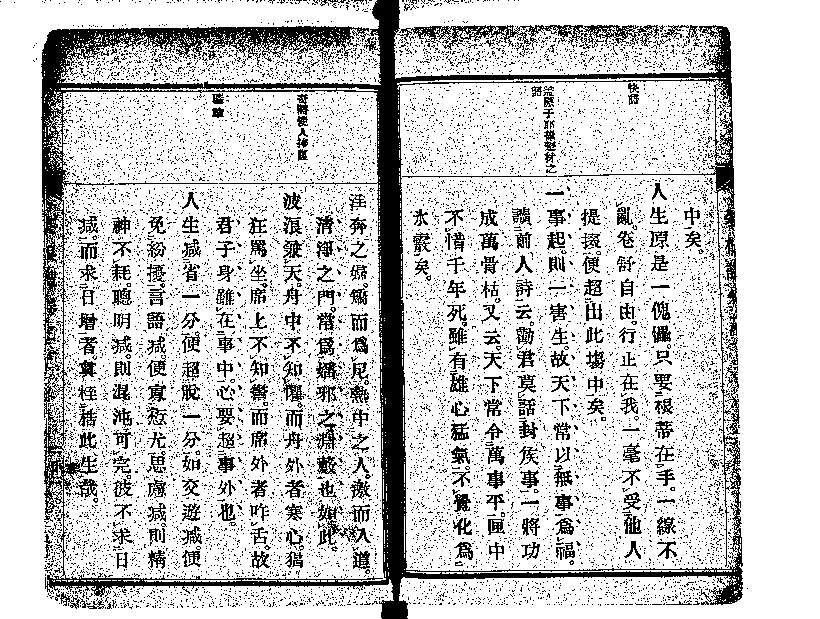 快語
中矣。
人生原是一傀儡。只要根蒂在手。一線不
亂。卷舒自由。行止在我。一毫不受他人
提掇。便超出此場中矣。
一事起則一害生。故天下常以無事爲福。
讀前人詩云。勸君莫話封侯事。一將功
成萬骨枯。又云。天下常令萬事平。匣中
不惜千年死。雖有雄心猛氣。不覺化爲
氷霰矣。
淫奔之婦。矯而爲尼。熱中之人。激而入道。
清淨之門。常爲婬邪之淵藪也如此。
波浪兼天。舟中不知懼。而舟外者寒心。猖
狂罵坐。席上不知警而席外者咋舌。故
君子身雖在事中。心要超事外也。
人生減省一分。便超脫一分。如交遊減便
免紛擾。言語減便寡愆尤。思慮減則精
神不耗。聰明減。則混沌可完。彼不求日
減。而求日增者。眞桎梏此生哉。